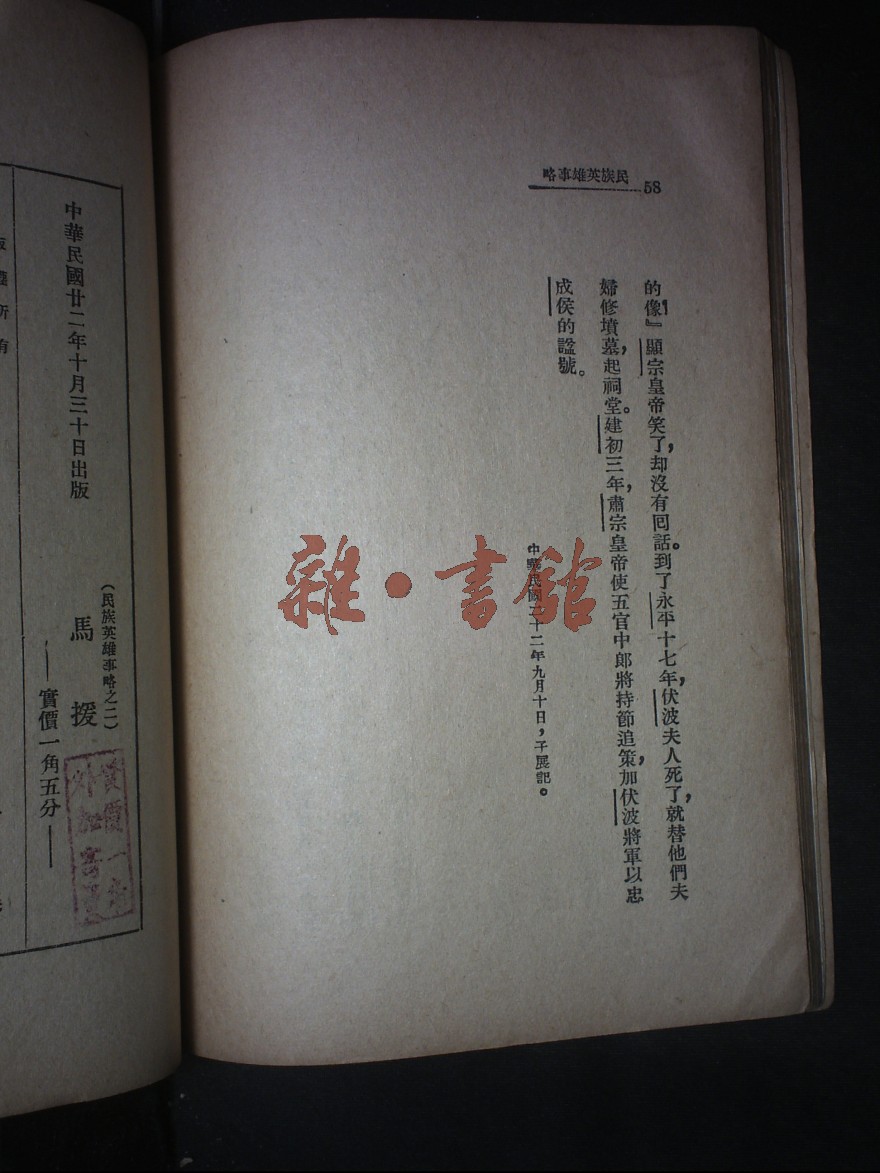 民族英雄事略
58
的像』顯宗皇帝笑了，却沒有回話。到了永平十七年，伏波夫人死了，就替他們夫
婦修墳墓，起祠堂。建初三年，肅宗皇帝使五官中郎將持節追策，加伏波將軍以忠
成侯的諡號。
中華民國二十二年九月十日，子展記。
雜·書館
（民族英雄事略之二）
馬援
實價一角五分
中華民國廿二年十月三十日出版
所有